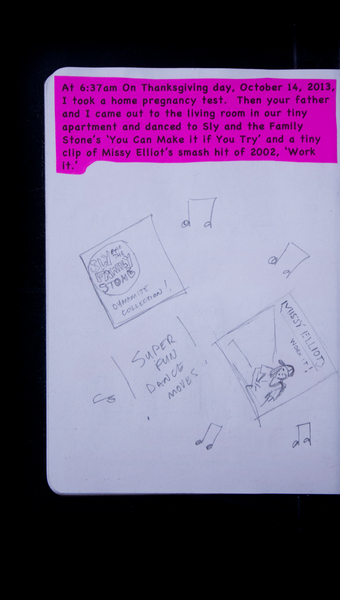 At 6:37am On Thanksgiving day, October 14, 2013,
I took a home pregnancy test. Then your father
and I came out to the living room in our tiny
apartment and danced to Sly and the Family
Stone's 'You Can Make It If You Try' and a tiny
clip of Missy Elliot's smash hit of 2002, 'Work
it.'
SLY AND
THE
FAMILY
STONE
COLLECTION!
MISSY ELLIOT
WORK IT!
SUPER
FUN
DANCE
MOVES